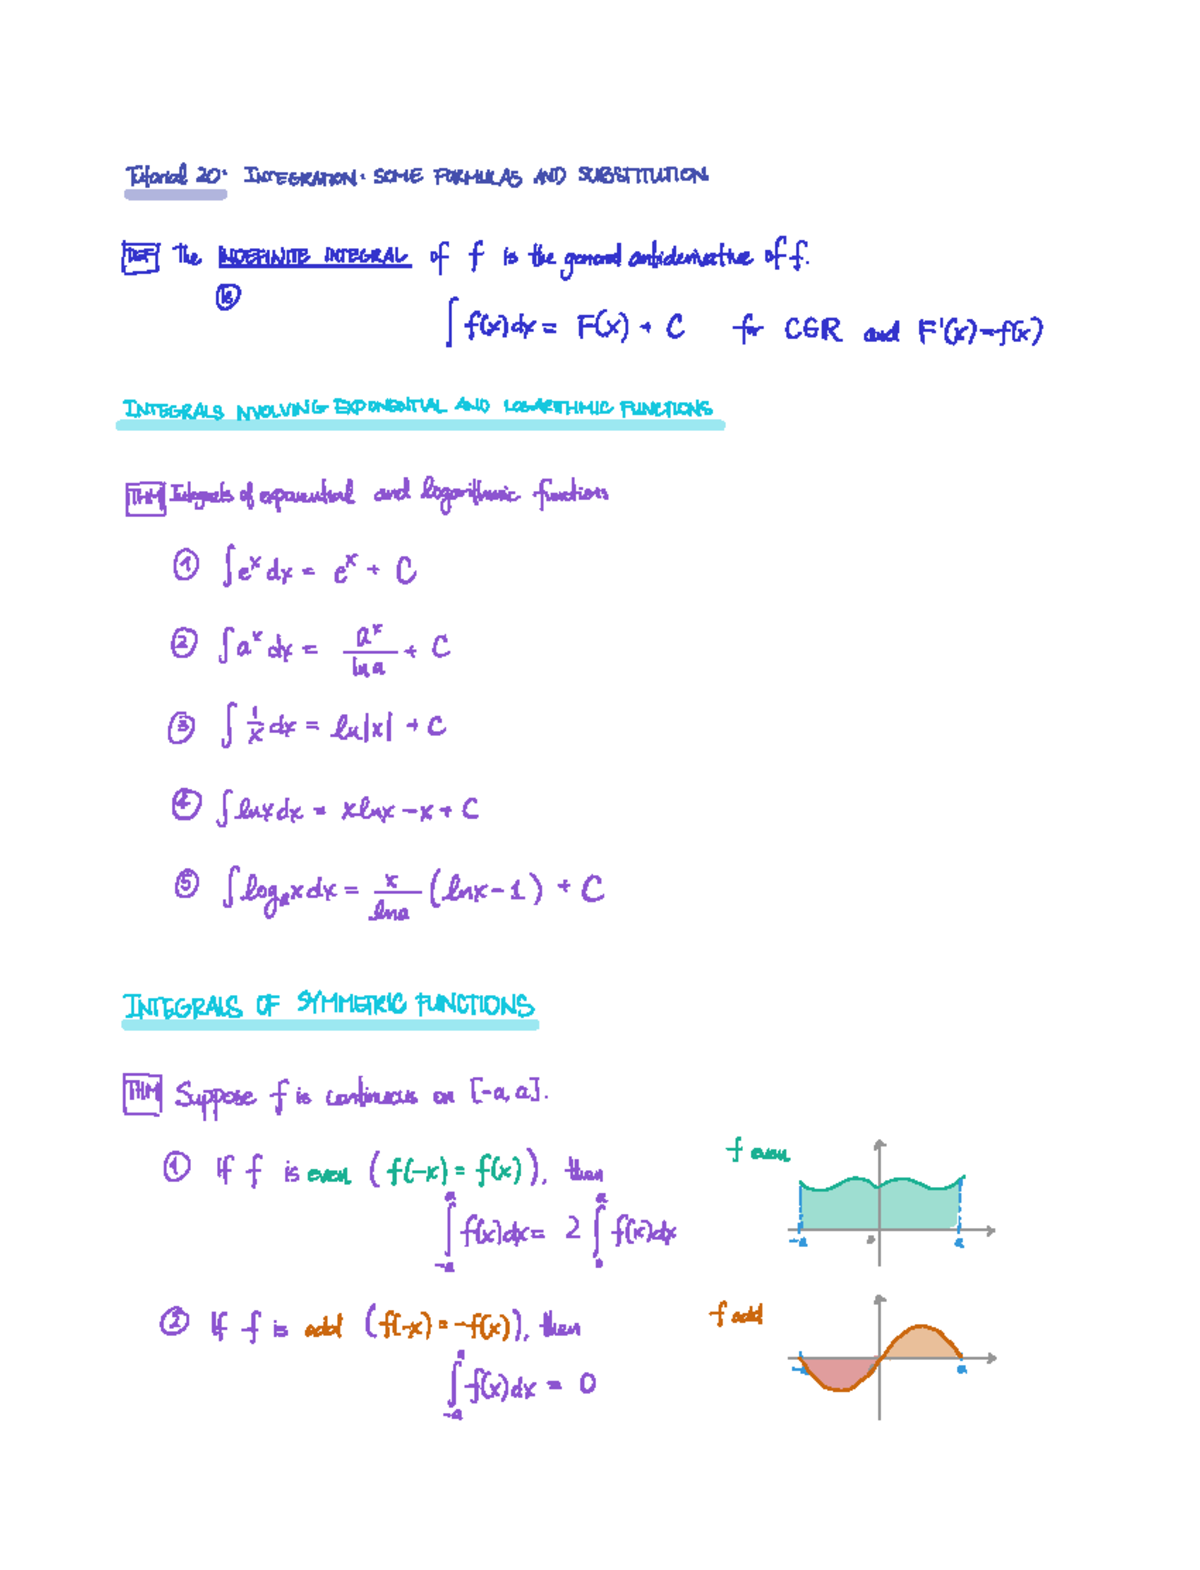 Tutorial 20: INTEGRATION: SOME FORMULAS AND SUBSTITUTION
DEF The INDEFINITE INTEGRAL of f is the general antiderivative of f.
is
∫ f(x)dx = F(x) + C for C∈ℝ and F'(x)=f(x)
INTEGRALS NVOLVING EXPONENTIAL AND LOGARITHMIC FUNCTIONS
THM Integrals of exponential and logarithmic functions
① ∫e^x dx = e^x + C
② ∫a^x dx = a^x/ln a + C
③ ∫ 1/x dx = ln|x| + C
④ ∫lnxdx = xlnx - x + C
⑤ ∫log_a xdx = x/lna (lnx - 1) + C
INTEGRALS OF SYMMETRIC FUNCTIONS
THM Suppose f is continuous on [-a, a].
① If f is even (f(-x) = f(x)), then
∫_{-a}^{a} f(x)dx = 2 ∫_0^a f(x)dx
f even
-a 0 a
② If f is odd (f(-x) = -f(x)), then
∫_{-a}^{a} f(x)dx = 0
f odd
-a a